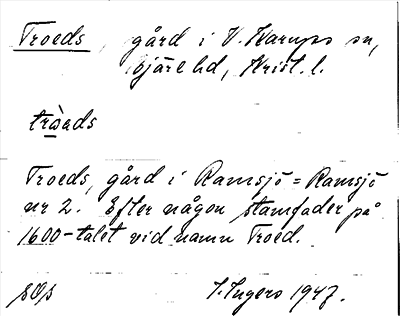 Troeds, gård i V. Karups sn,
Bjäre hd, Krist. l.
tròeds
Troeds, gård i Ramsjö = Ramsjö
nr 2. Efter någon stamfader på
1600-talet vid namn Troed.
1947.